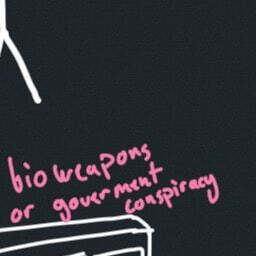 bioweapons
or goverment
conspiracy